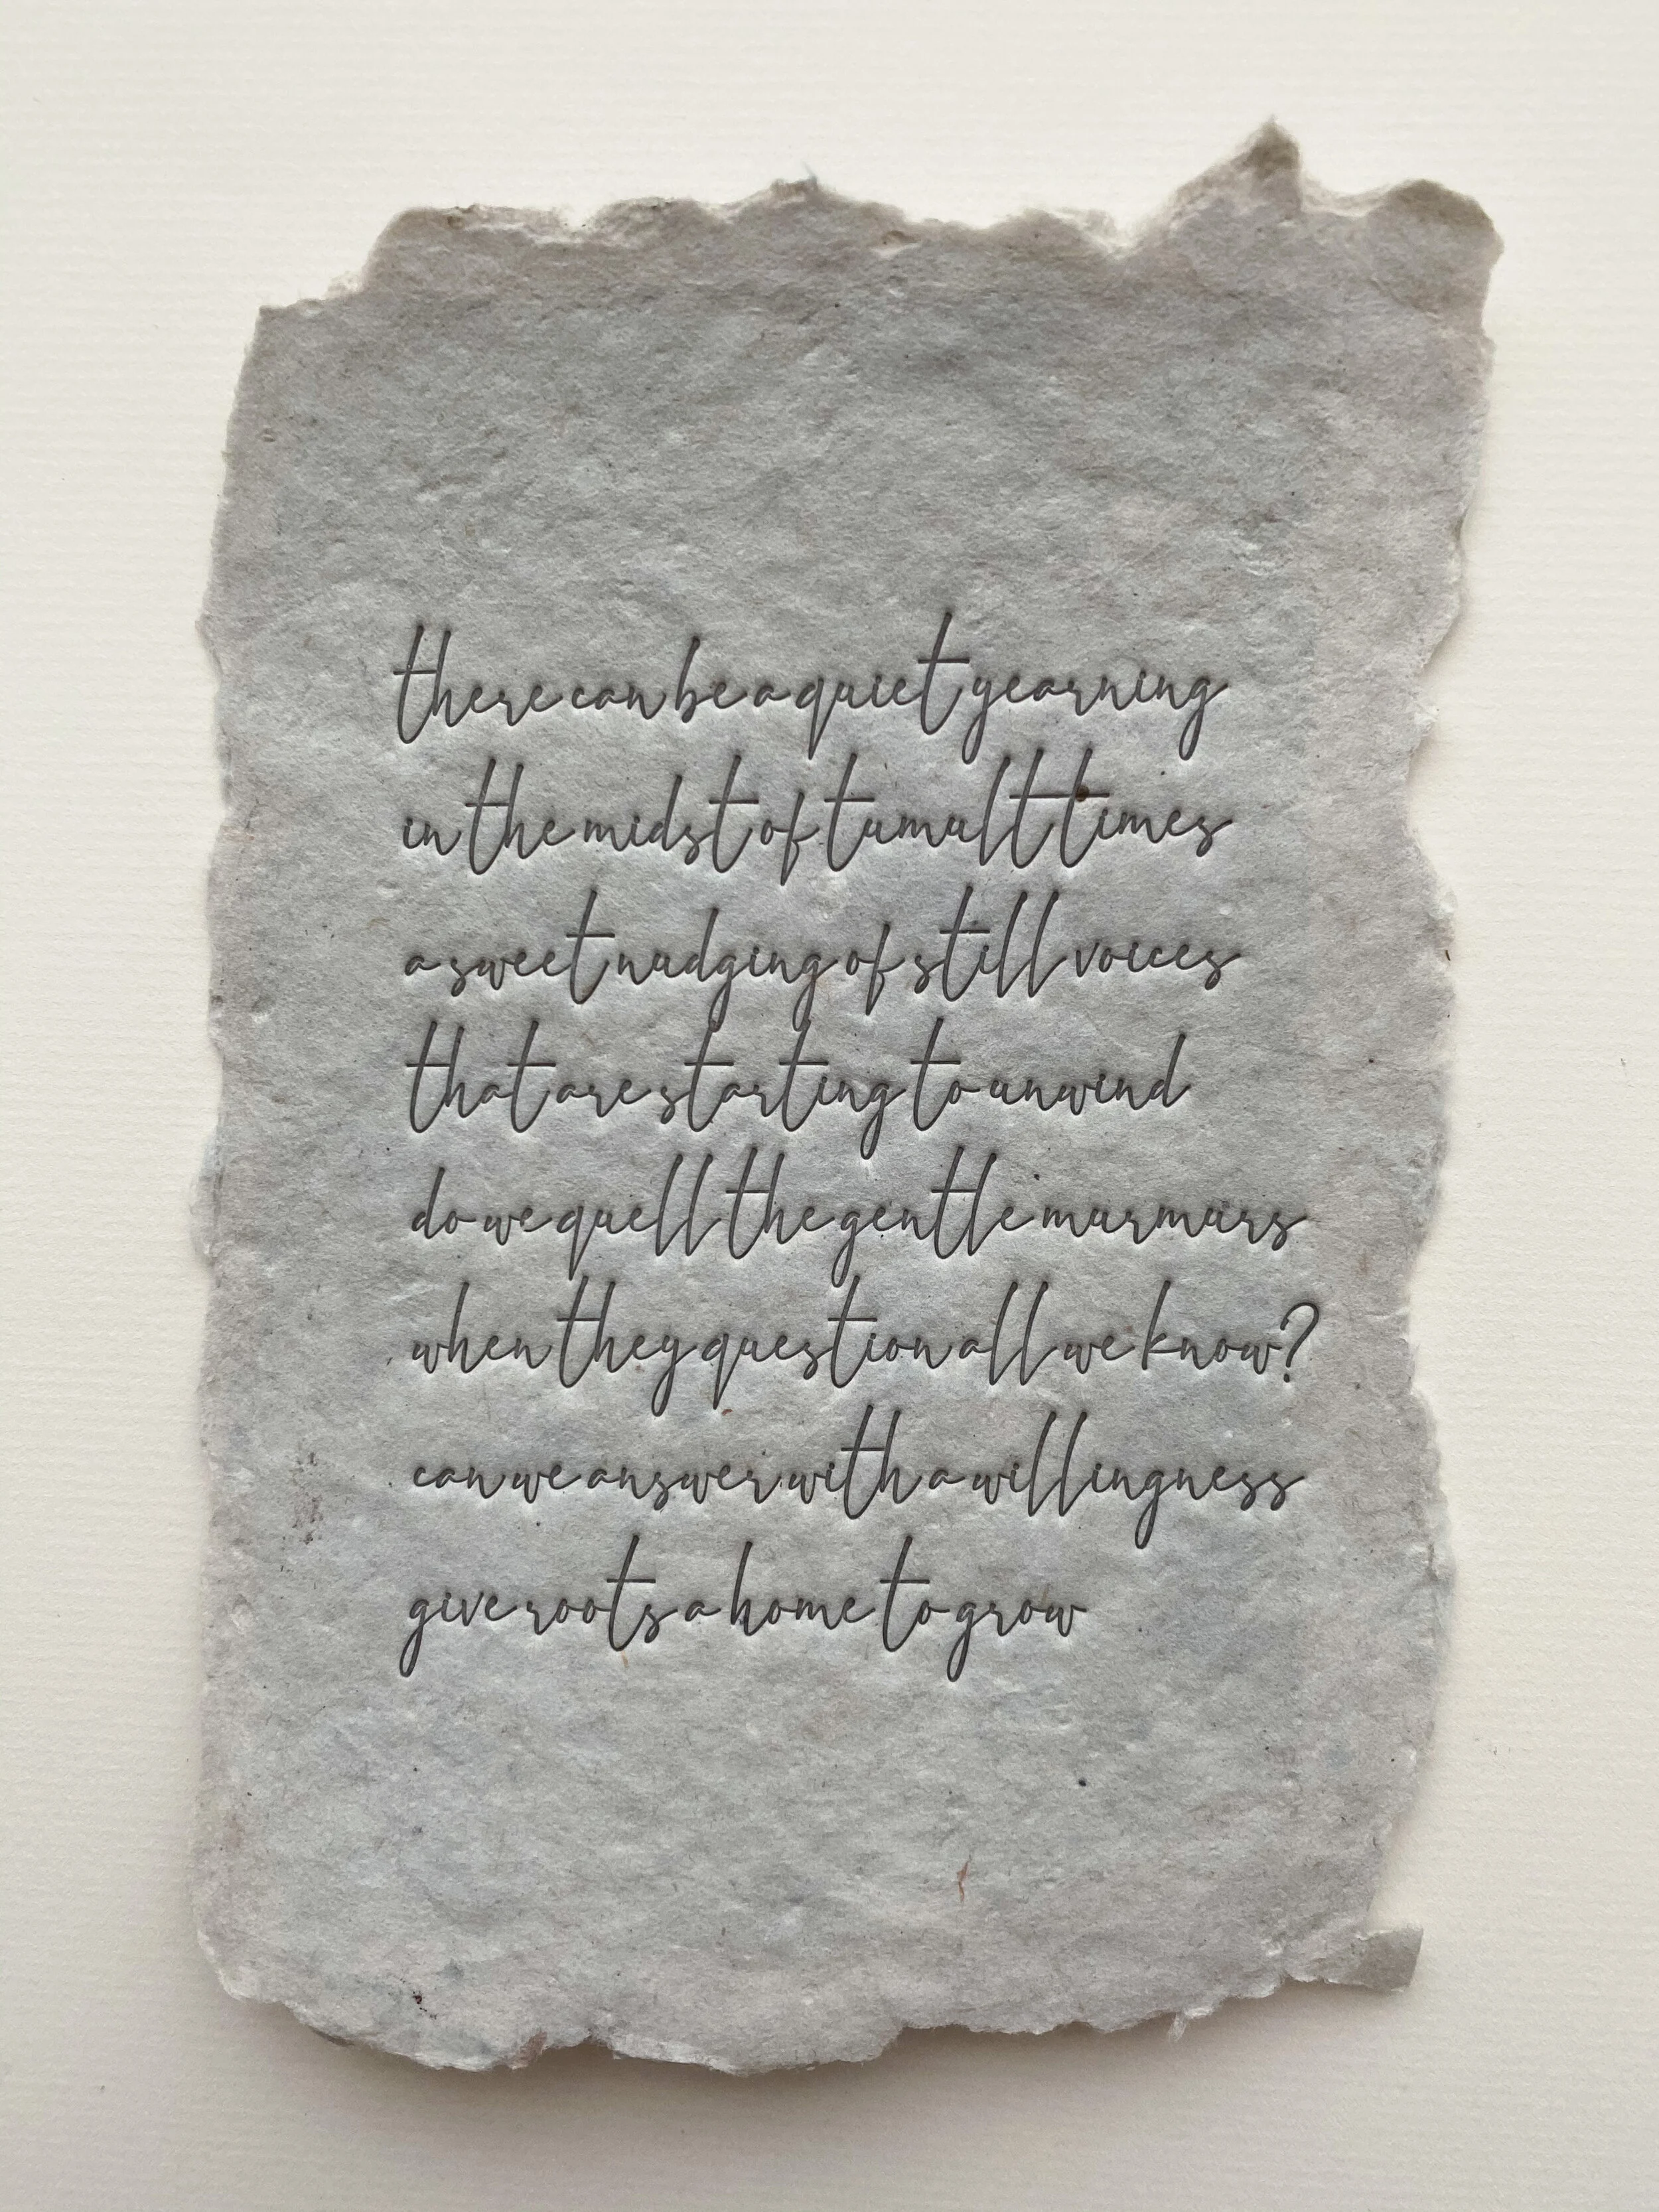 there can be a quiet yearning
in the midst of tumult times
a sweet nudging of still voices
that are starting to unwind
do we quell the gentle murmurs
when they question all we know?
can we answer with a willingness
give roots a home to grow